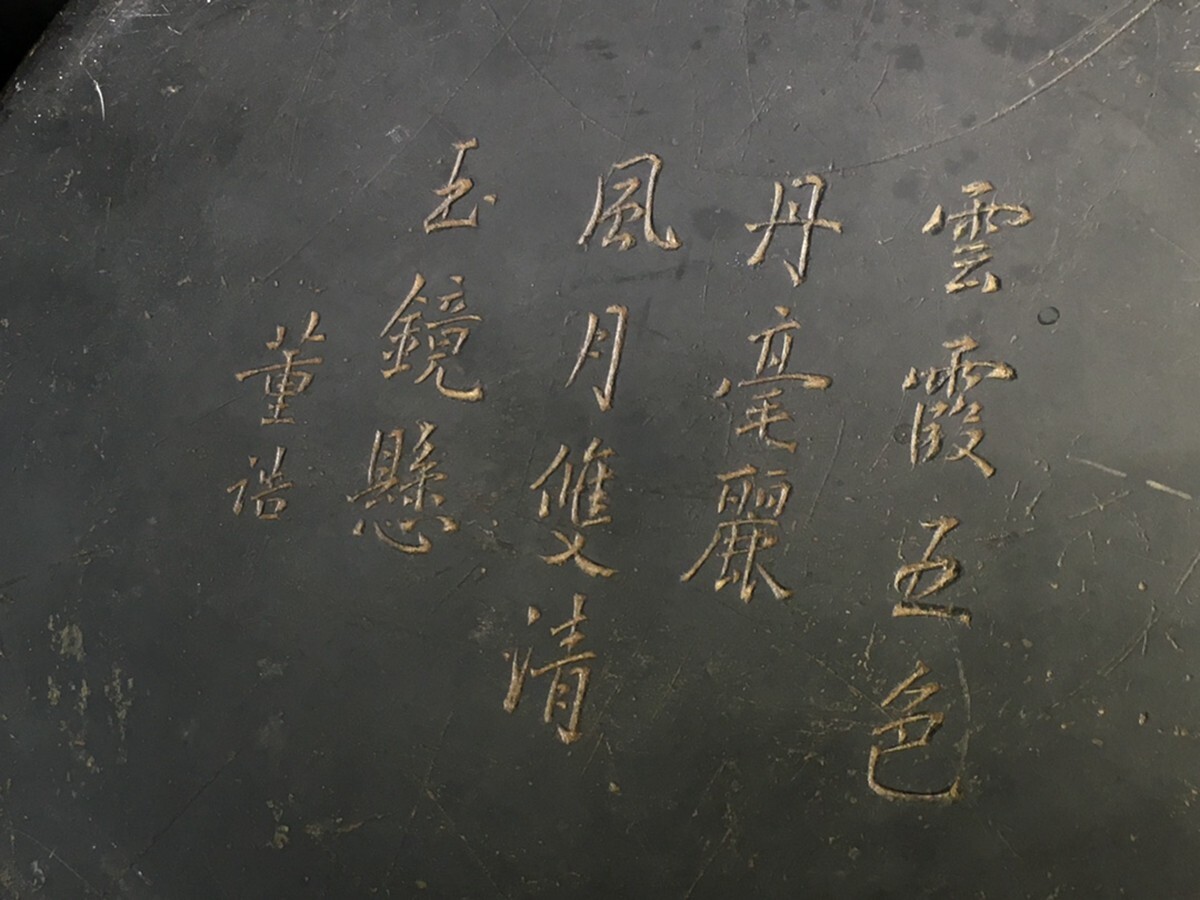 雲霞五色
丹毫麗
風月雙清
玉鏡懸
董浩